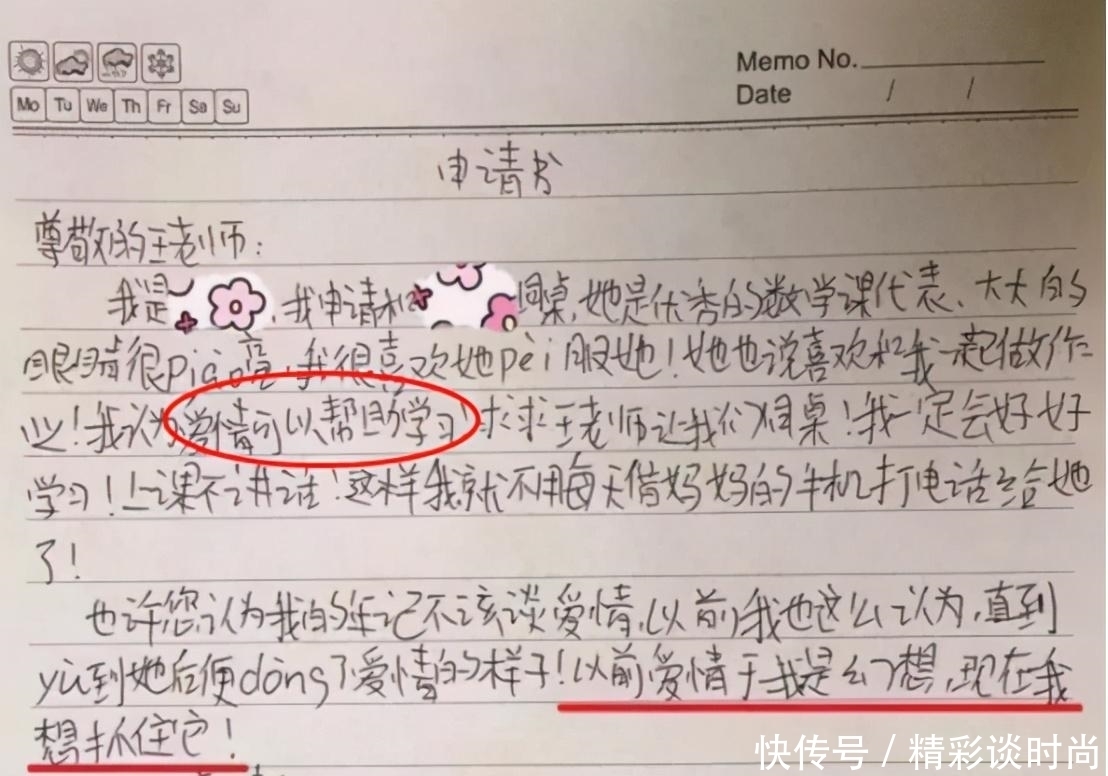 Memo No.
Date / /
Mo Tu We Th Fr Sa Su
申请书
尊敬的王老师：
我是，我申请和同桌，她是优秀的数学课代表、大大的
眼睛很piào亮，我很喜欢她pèi服她！她也说喜欢和我一起做作
业！我认为爱情可以帮助学习！求求王老师让我们同桌！我一定会好好
学习！上课不讲话！这样我就不用每天借妈妈的手机打电话给她
了！
也许您认为我的年记不该谈爱情，以前我也这么认为，直到
yù到她后便dǒng了爱情的样子！以前爱情于我是幻想，现在我
想抓住它！
快传号/精彩谈时尚